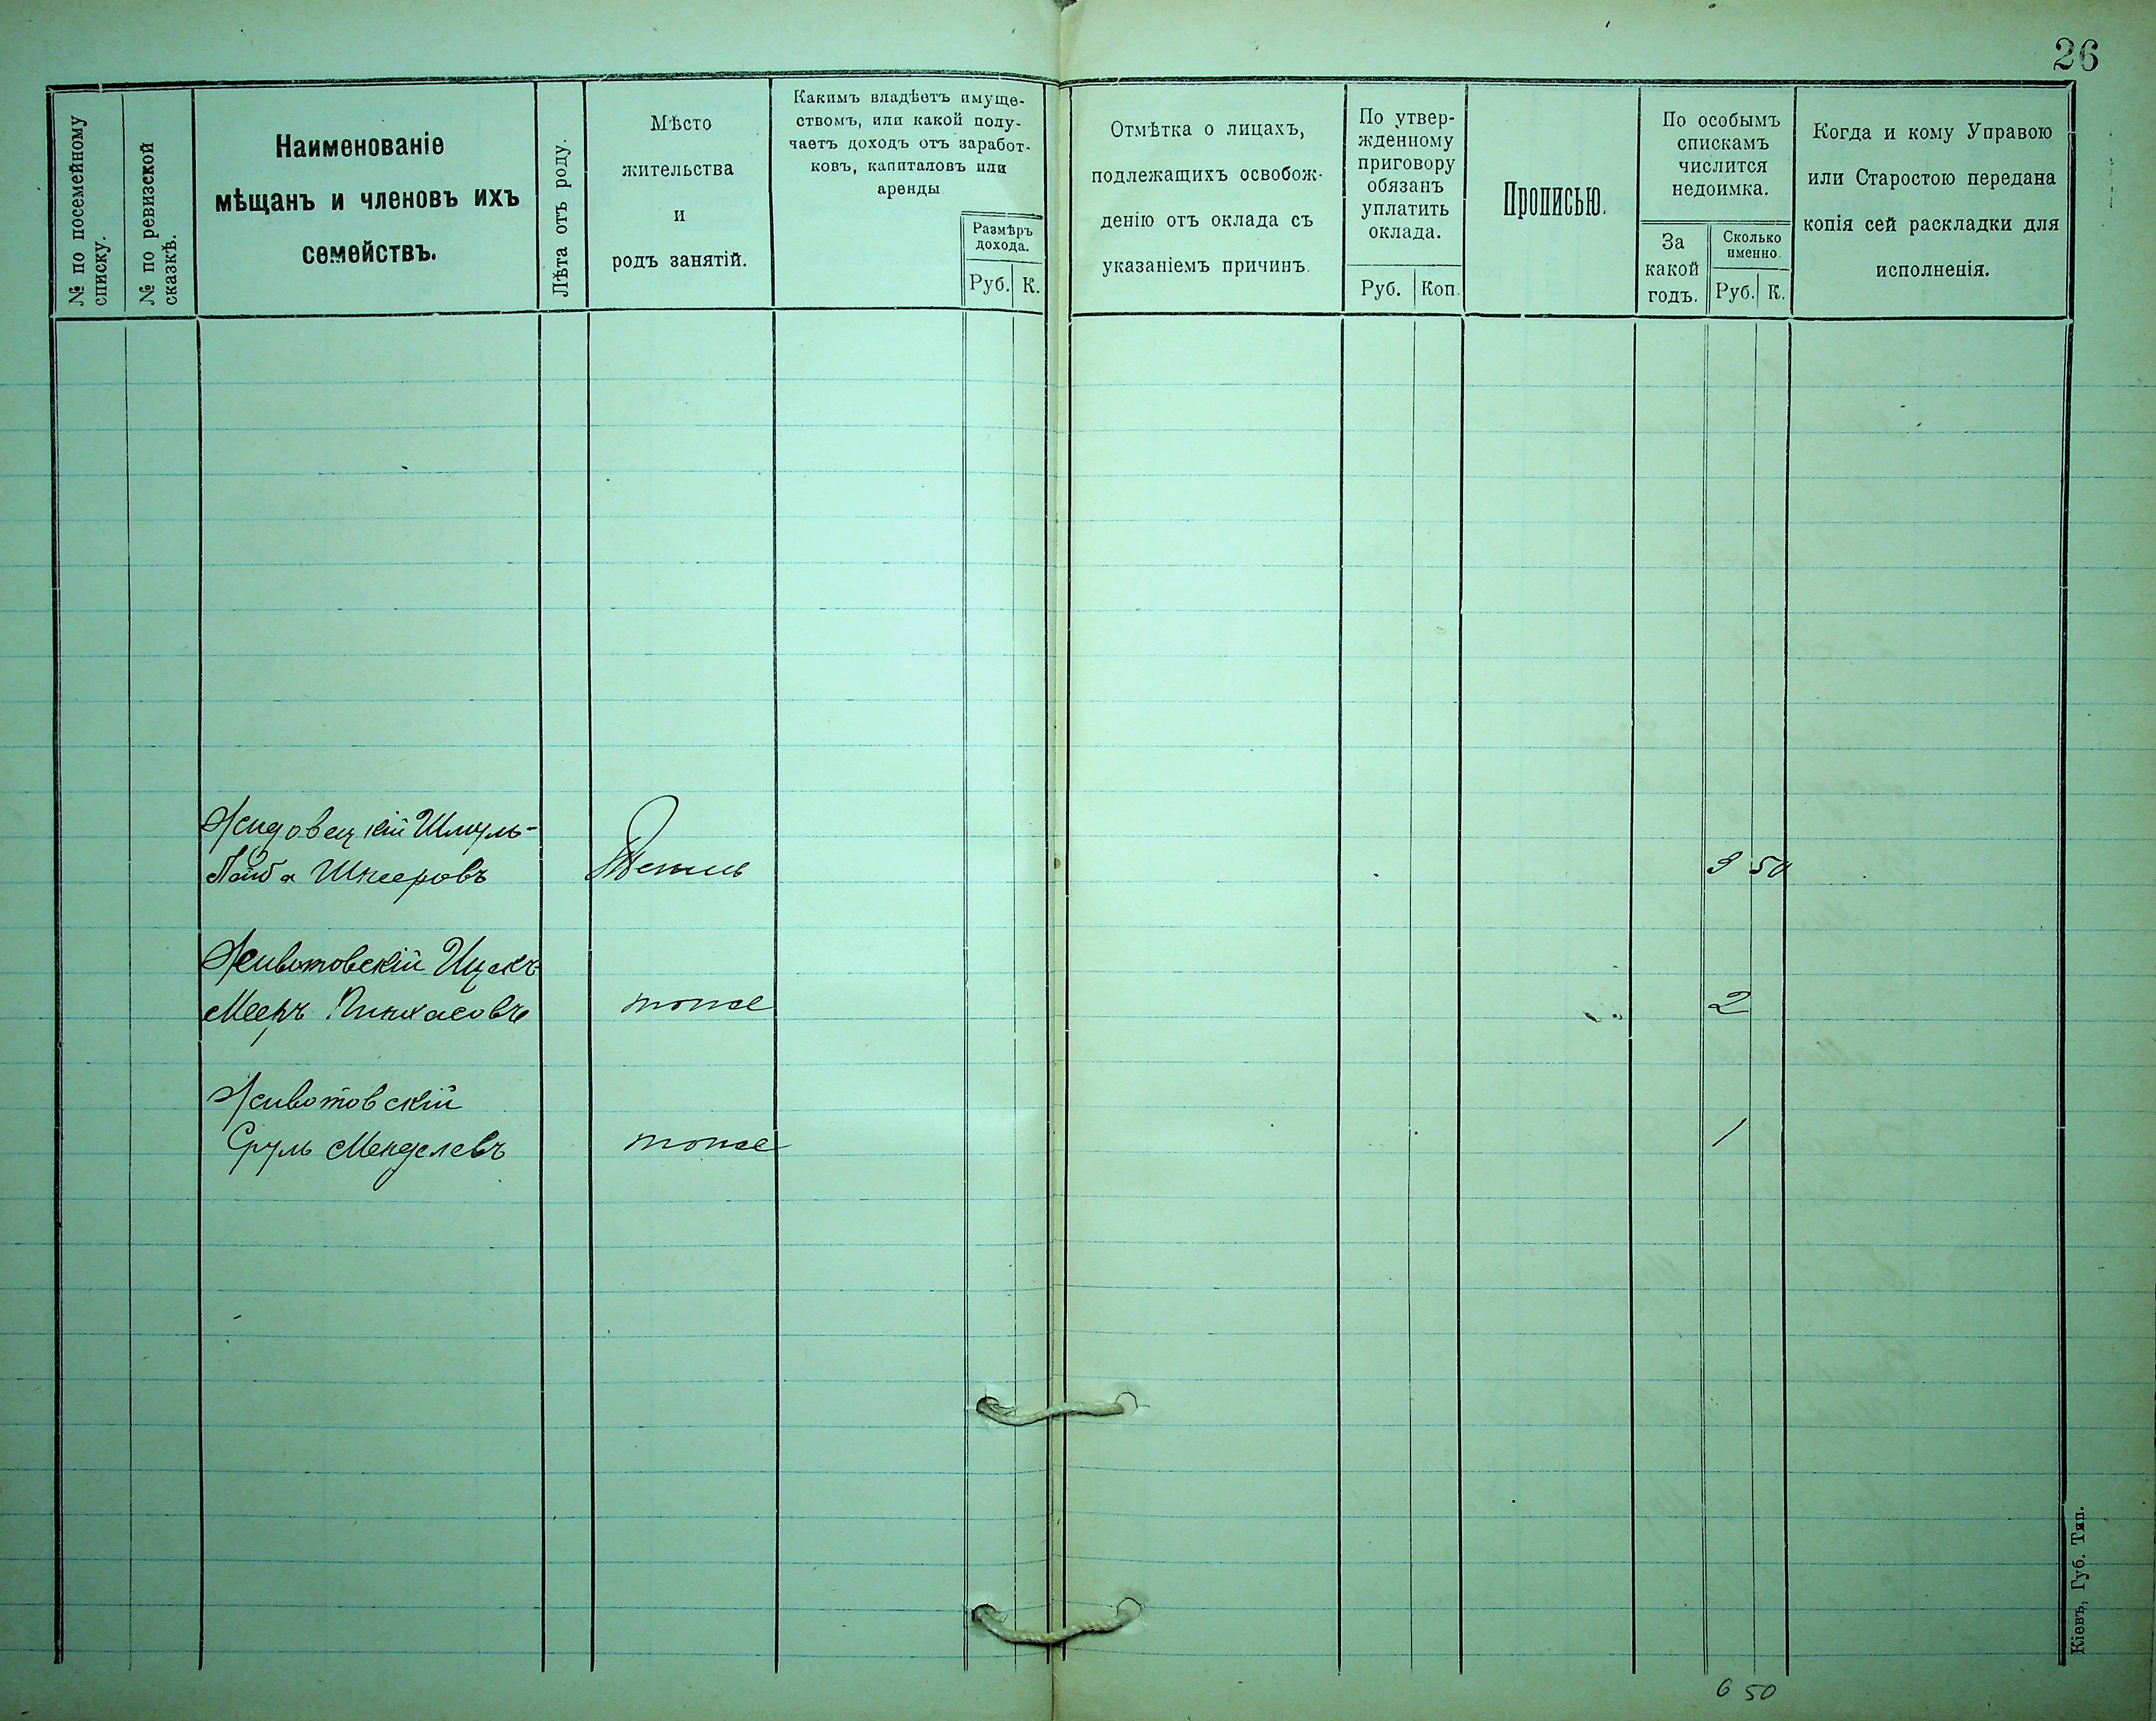 26
№ по посемейному
списку.
№ по ревизской
сказкѣ.
Наименованіе
мѣщанъ и членовъ ихъ
семействъ.
Лѣта отъ роду.
Мѣсто
жительства
и
родъ занятій.
Какимъ владѣетъ имуще-
ствомъ, или какой полу-
чаетъ доходъ отъ заработ-
ковъ, капиталовъ или
аренды
Размѣръ
дохода.
Руб. К.
Отмѣтка о лицахъ,
подлежащихъ освобож-
денію отъ оклада съ
указаніемъ причинъ.
По утвер-
жденному
приговору
обязанъ
уплатить
оклада.
Руб. Коп.
Прописью.
По особымъ
спискамъ
числится
недоимка.
За
какой
годъ.
Сколько
именно.
Руб. К.
Когда и кому Управою
или Старостою передана
копія сей раскладки для
исполненія.
Жидовецкій Шмуль-
Лейба Шнееровъ 3 50
Животовскій Ицекъ
Мееръ Пинхасовъ тоже 2
Животовскій
Сруль Менделевъ тоже 1
6 50
Кіевъ, Губ. Тип.